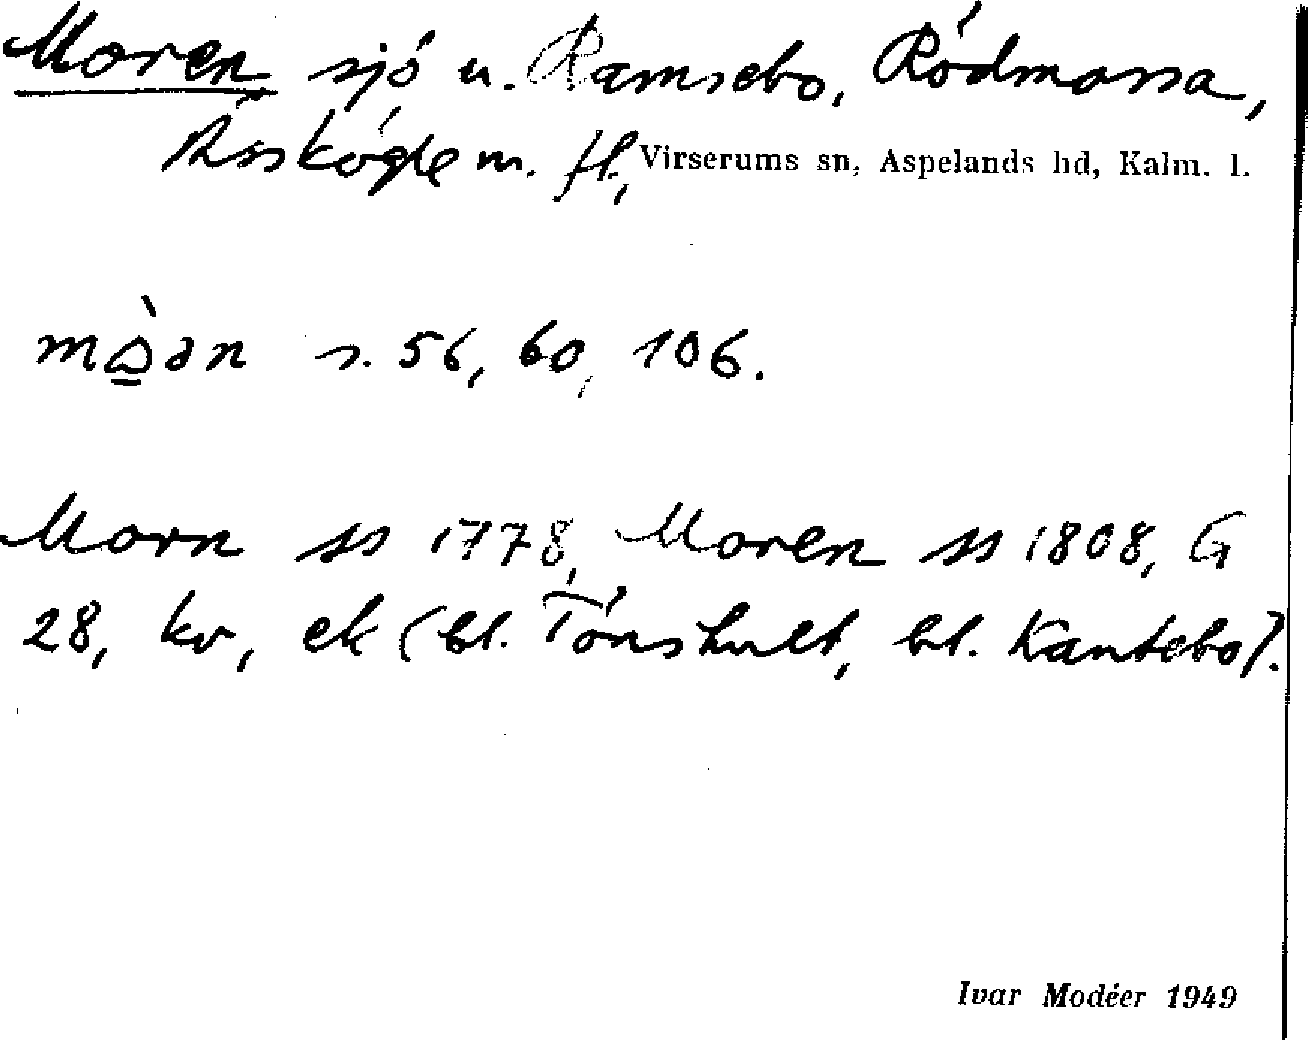 Moren sjö u. Ramsebo, Rödmossa,
Åsskögle m. fl., Virserums sn, Aspelands hd, Kalm. l.
s. 56, 60, 106.
Morn ss 1778, Moren ss 1808, G
28, kv, ek (bl. Tönshult, bl. Kantebo).
Ivar Modéer 1949